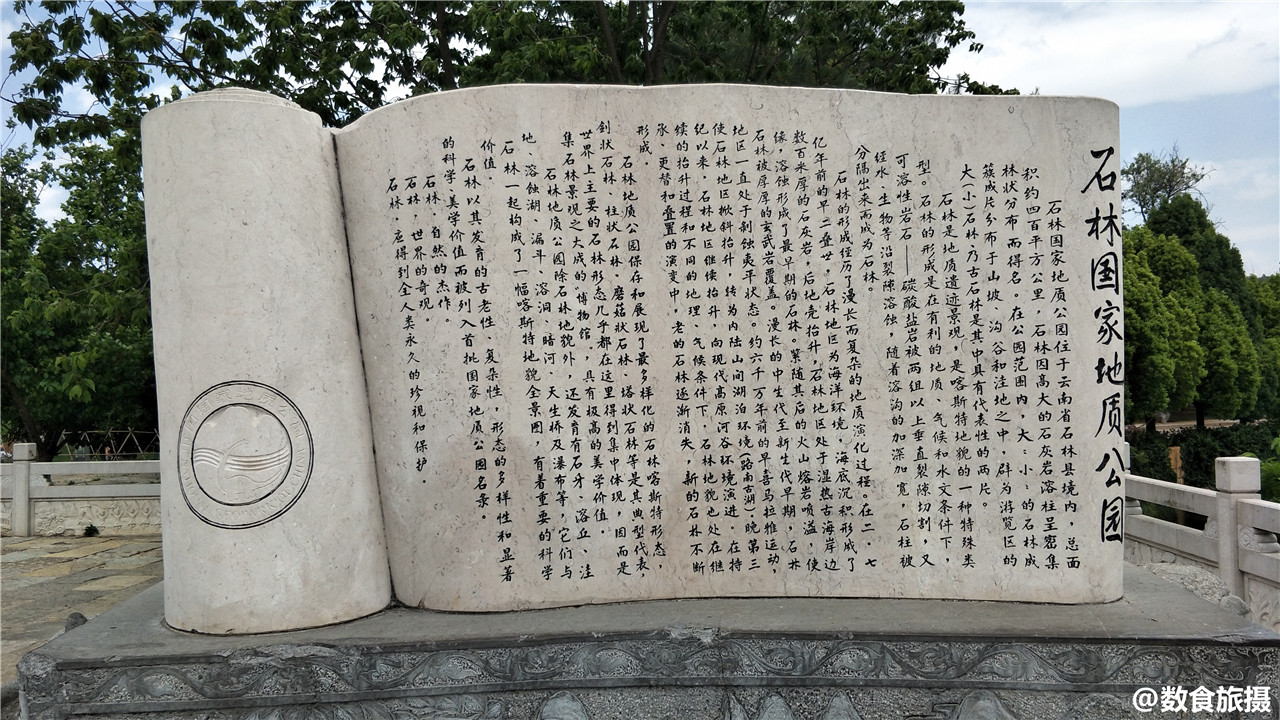 石林国家地质公园
石林国家地质公园位于云南省石林县境内，总面
积约四百平方公里，石林因高大的石灰岩溶柱呈密集
林状分布而得名。在公园范围内，大、小、的石林成
簇成片分布于山坡、沟谷和洼地之中，群为游览区的
大（小）石林乃古石林是其中具有代表性的两片。
石林是地质遗迹景观，是喀斯特地貌的一种特殊类
型。石林的形成是在有利的地质、气候和水文条件下，
可溶性岩石——碳酸盐岩被两组以上垂直裂隙切割，又
经水、生物等沿裂隙溶蚀，随着溶沟的加深加宽，石柱被
分隔出来而成为石林。
石林的形成经历了漫长而复杂的地质演化过程。在二·七
亿年前的早二叠世，石林地区为海洋环境，海底沉积形成了
数百米厚的石灰岩，后地壳抬升，石林地区处于湿热古海岸边
缘，溶蚀形成了最早期的石林。紧随其后的火山熔岩喷溢，使
石林被厚厚的玄武岩覆盖。漫长的中生代至新生代早期，石林
地区一直处于剥蚀夷平状态。约六千万年前的早喜马拉雅运动，
使石林地区掀斜抬升，转为内陆山间湖泊环境（路南古湖）。晚第三
纪以来，石林地区继续抬升，向现代高原河谷环境演进。在持
续的抬升过程和不同的地理、气候条件下，石林地貌也处在继
承、更替和叠置的演变中，老的石林逐渐消失，新的石林不断
形成。
石林地质公园保存和展现了最多样化的石林喀斯特形态，
剑状石林、柱状石林、磨菇状石林、塔状石林等是其典型代表，
世界上主要的石林形态几乎都在这里得到集中体现，因而是
集石林景观之大成的"博物馆，具有极高的美学价值。
石林地质公园除石林地貌外，还发育有石牙、溶丘、洼
地、溶蚀湖、漏斗、溶洞、暗河、天生桥及瀑布等，它们与
石林一起构成了一幅喀斯特地貌全景图，有着重要的科学
价值。
石林以其发育的古老性、复杂性，形态的多样性和显著
的科学、美学价值而被列入首批国家地质公园名录。
石林，自然的杰作。
石林，世界的奇观。
石林，应得到全人类永久的珍视和保护。
@数食旅摄